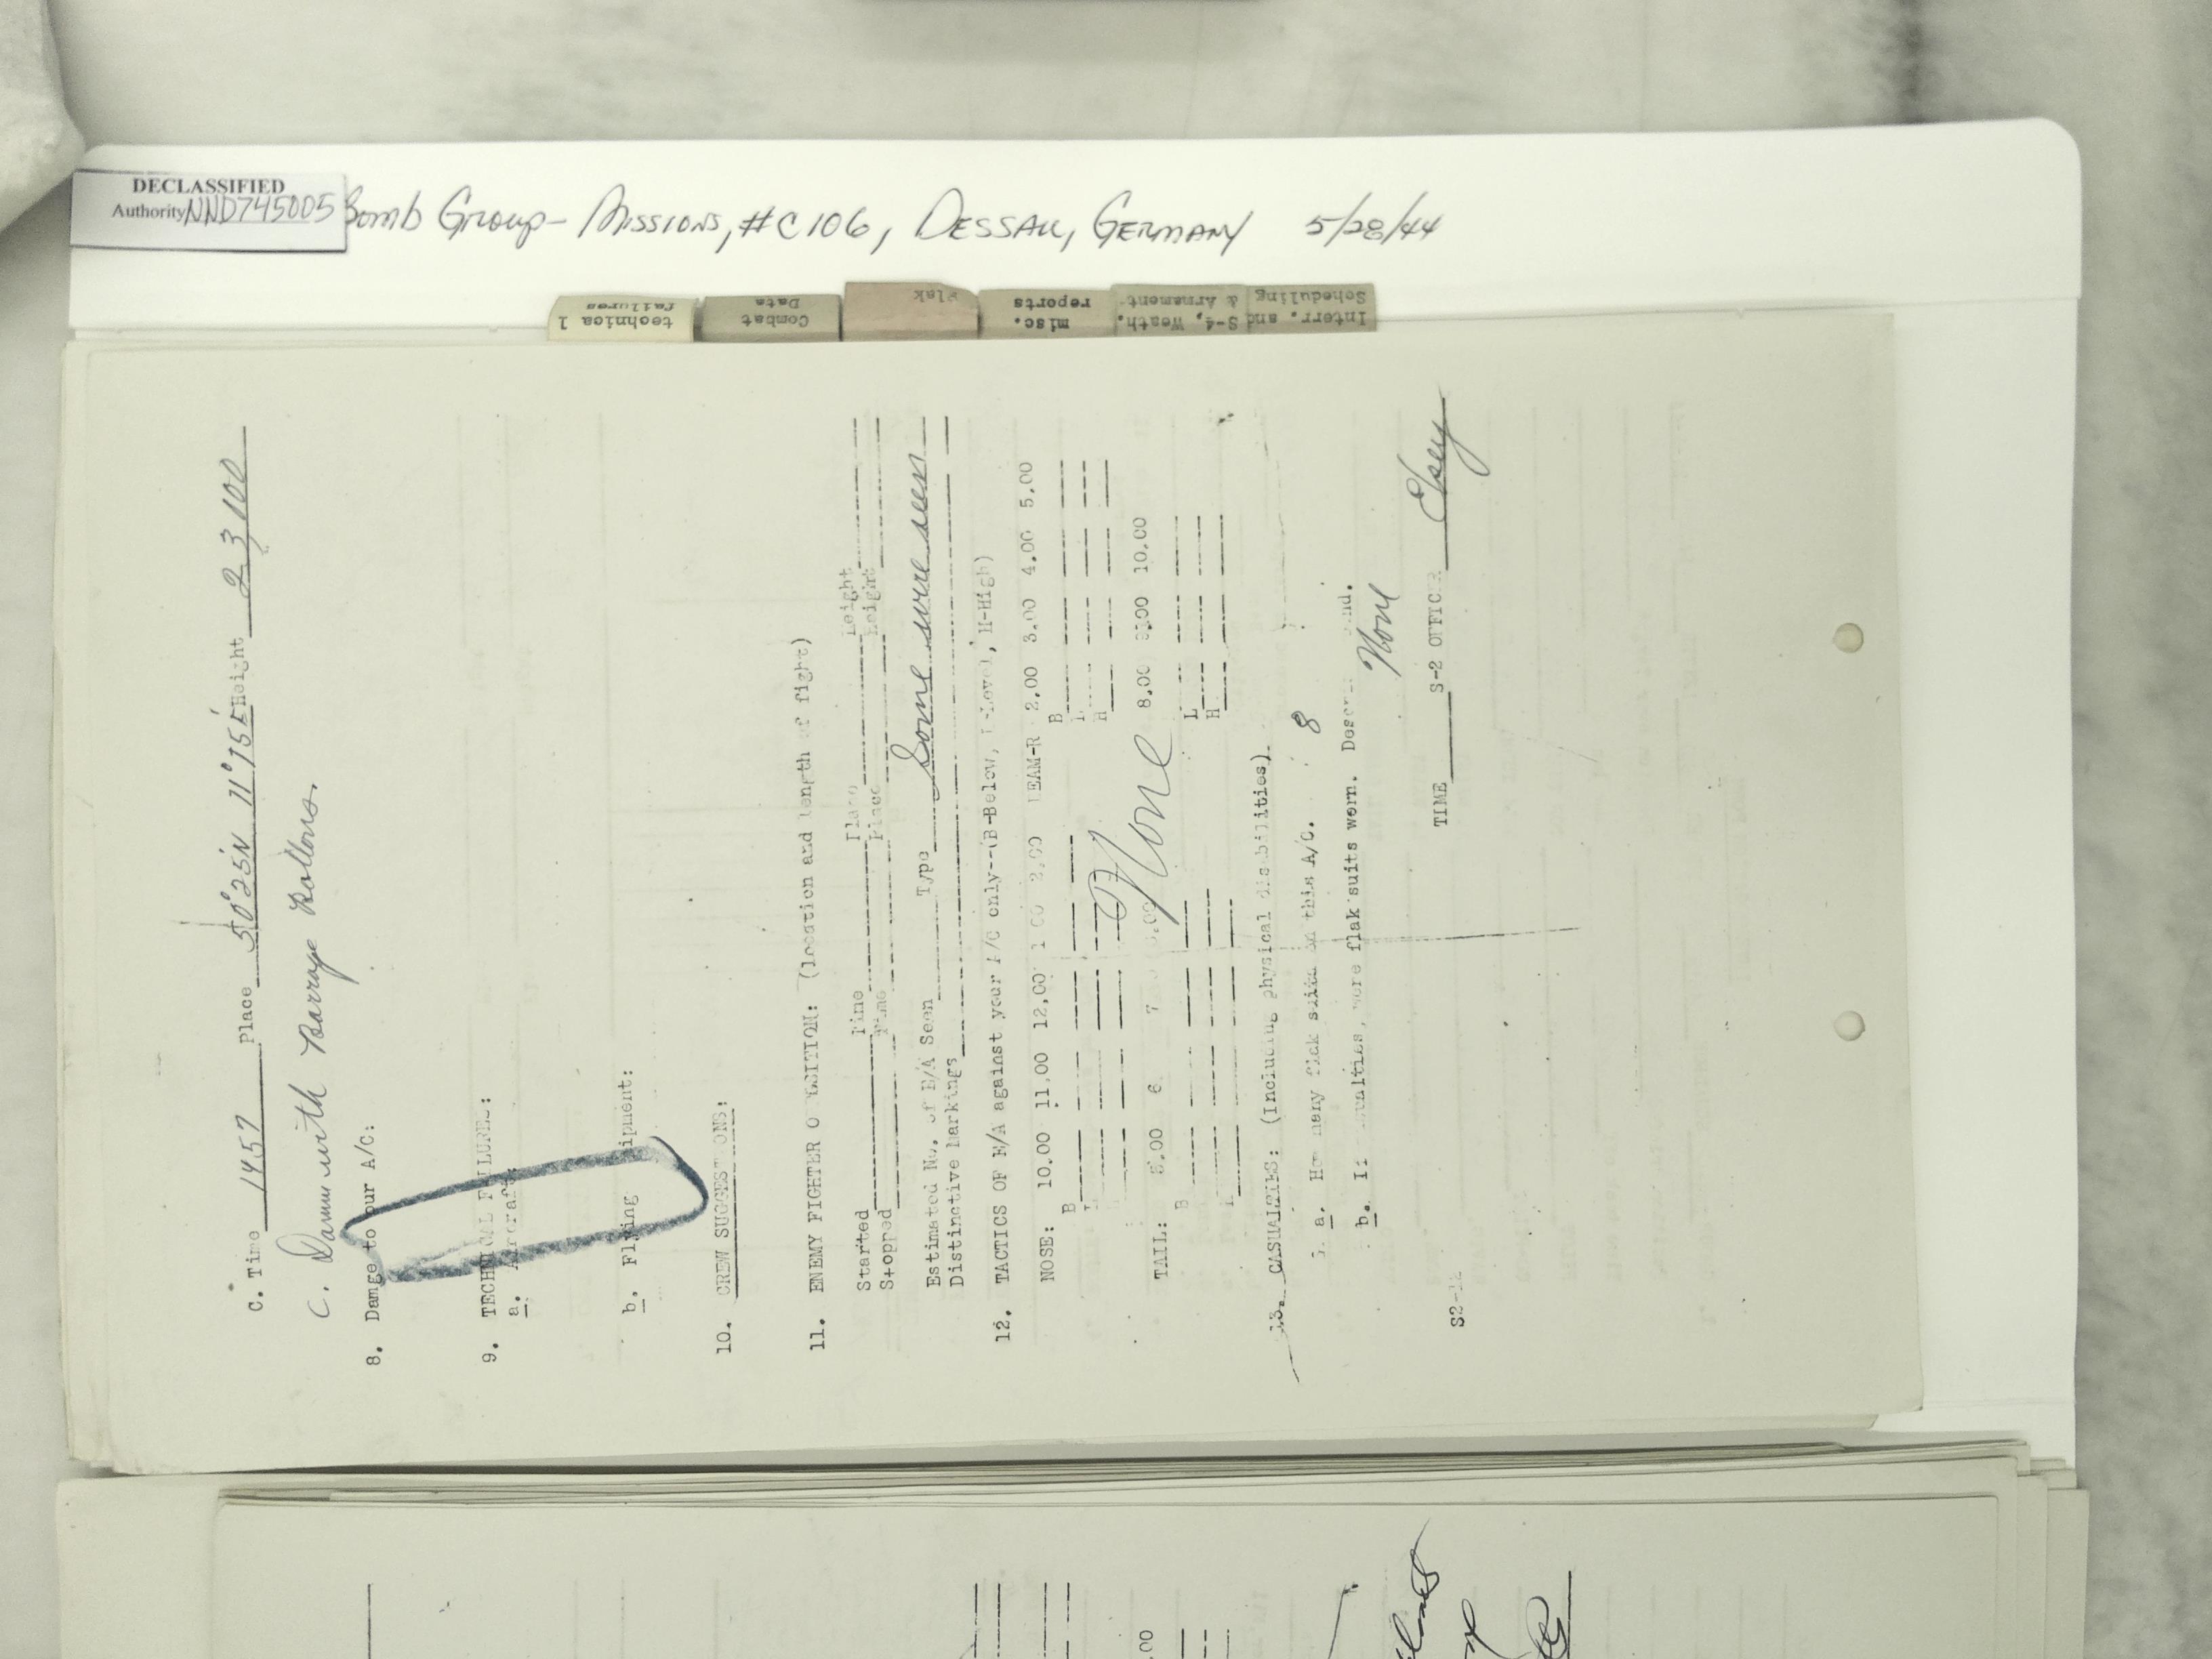 DECLASSIFIED
Authority NND745005
Bomb Group- Missions, #C106, Dessau, Germany 5/28/44
technical failures
Combat Data
Flak
misc. reports
S-4, Weath. & Armament
Interr. and Scheduling
C. Time 1457 Place 50°25'N 11°15'E Height 23100
C. Damm with Barrage Ballons.
8. Damage to your A/C:
9. TECHNICAL FAILURES:
a. Aircraft:
b. Flying
10. CREW SUGGESTIONS:
11. ENEMY FIGHTER OPPOSITION: (location and length of fight)
Started Time Place Height
Stopped Time Place Height
Estimated No. of E/A Seen Type Some were seen
Distinctive Markings
12. TACTICS OF E/A against your A/C only--(B-Below, L-Level, H-High)
NOSE: 10.00 11.00 12.00 1.00 2.00 BEAM-R 2.00 3.00 4.00 5.00
B B
L L
H
None
TAIL: 5.00 6 7 8.00 9.00 10.00
B
L L
H
13. CASUALTIES: (Including physical disabilities)
a. How many flak suits on this A/C. 8
b. If casualties, were flak suits worn. Describe
None
TIME S-2 OFFICER Elsey
S2-
.00